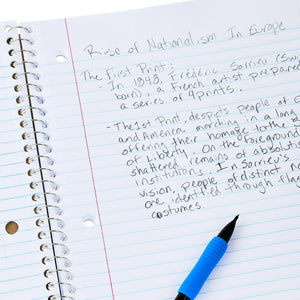 Rise of Nationalism In Europe
The First Print:
- In 1848, Frédéric Sorrieu (Sw
born), a French artist prepared
a series of 4prints.
- The 1st Print, despots people of E
and America marching in a long
offering their homage to the
of Liberty. On the foreground
shattered remains of absoluti
institutions. In Sorrieu's
vision, people of distinct
are identified through flag
costumes.